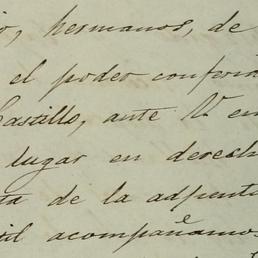 hermanos, de
el poder conferi
Castillo, ante V. en
lugar en derech
ta de la adjunta
acompañamos